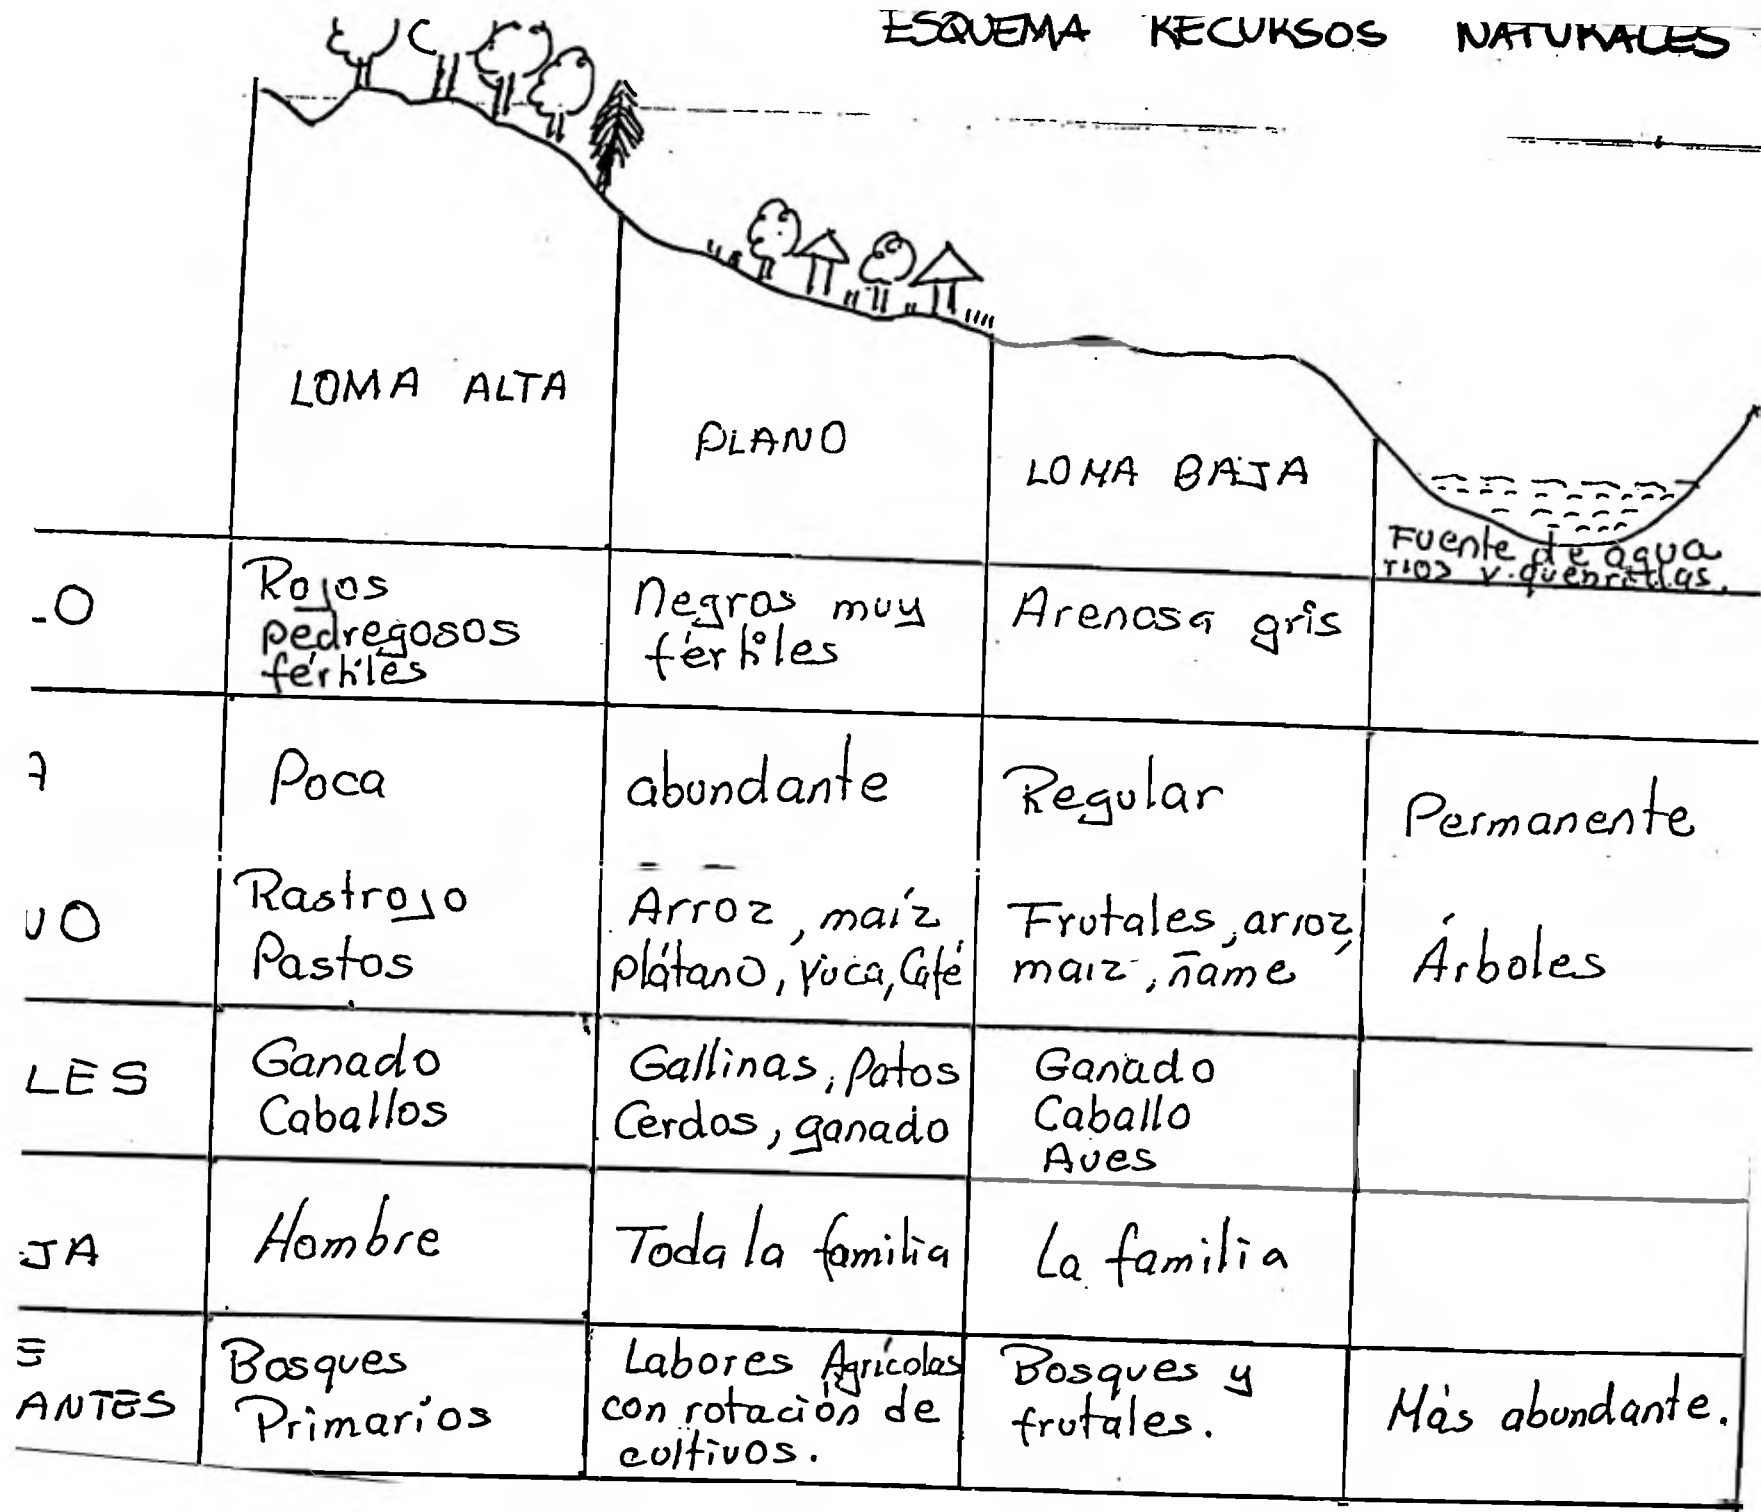 ESQUEMA RECURSOS NATURALES
LOMA ALTA
PLANO
LOMA BAJA
Fuente de agua
rios y quebradas.
LO
Rojos
pedregosos
fértiles
Negros muy
fértiles
Arenosa gris
A
Poca
abundante
Regular
Permanente
VO
Rastrojo
Pastos
Arroz, maíz
plátano, Yuca, Café
Frutales, arroz,
maiz, ñame
Árboles
LES
Ganado
Caballos
Gallinas, Patos
Cerdos, ganado
Ganado
Caballo
Aves
JA
Hombre
Toda la familia
La familia
ANTES
Bosques
Primarios
Labores Agrícolas
con rotación de
cultivos.
Bosques y
frutales.
Más abundante.